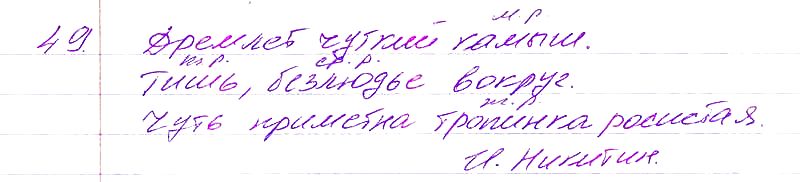 49. Дремлет чуткий камыш. м.р.
Тишь, безлюдье вокруг. ж.р. ср.р.
Чуть приметна тропинка росистая. ж.р.
И. Никитин.